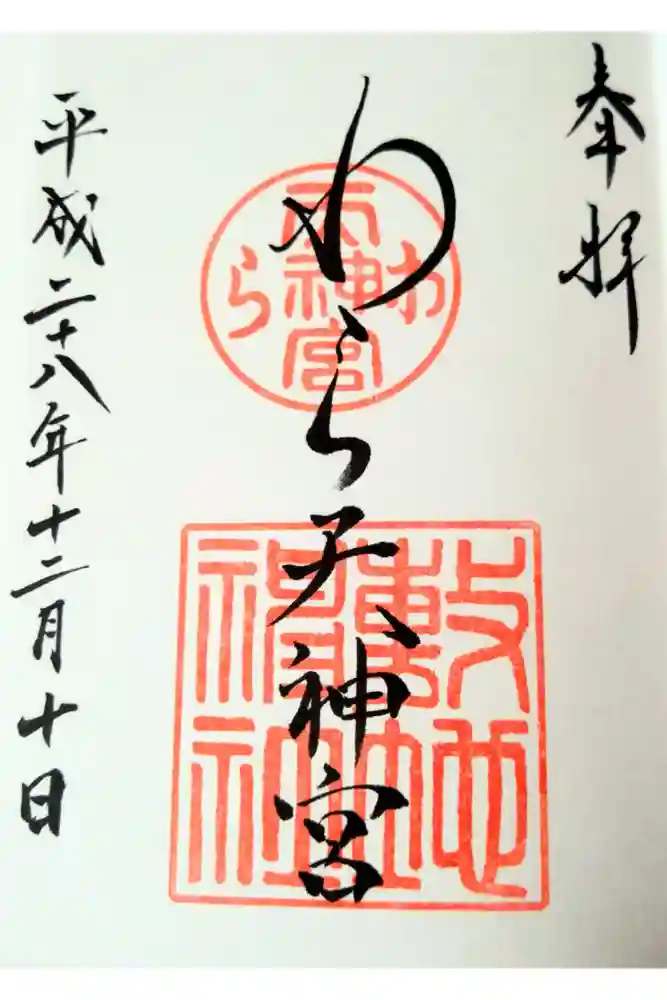 奉拝
わら天神宮
わら
天神宮
敷地
神社
平成二十八年十二月十日